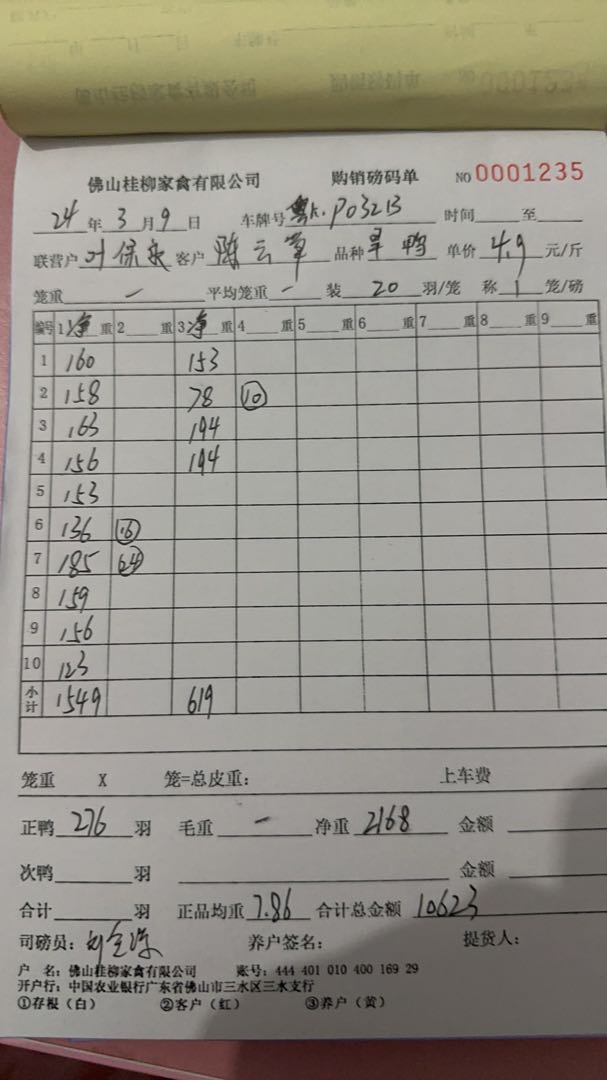 佛山桂柳家禽有限公司 购销磅码单 NO 0001235
24 年 3 月 9 日 车牌号 粤K.P03213 时间 至
联营户 叶保 客户 陈云 品种 鸭 单价 4.9 元/斤
笼重 — 平均笼重 — 装 20 羽/笼 称 1 笼/磅
编号 1 净 重 2 重 3 净 重 4 重 5 重 6 重 7 重 8 重 9 重
1 160 153
2 158 78 10
3 163 194
4 156 194
5 153
6 136 16
7 185 24
8 159
9 156
10 123
小计 1549 619
笼重 X 笼=总皮重: 上车费
正鸭 276 羽 毛重 — 净重 2168 金额
次鸭 羽 金额
合计 羽 正品均重 7.86 合计总金额 10623
司磅员: 养户签名: 提货人:
户 名: 佛山桂柳家禽有限公司 账号: 444 401 010 400 169 29
开户行: 中国农业银行广东省佛山市三水区三水支行
①存根（白） ②客户（红） ③养户（黄）